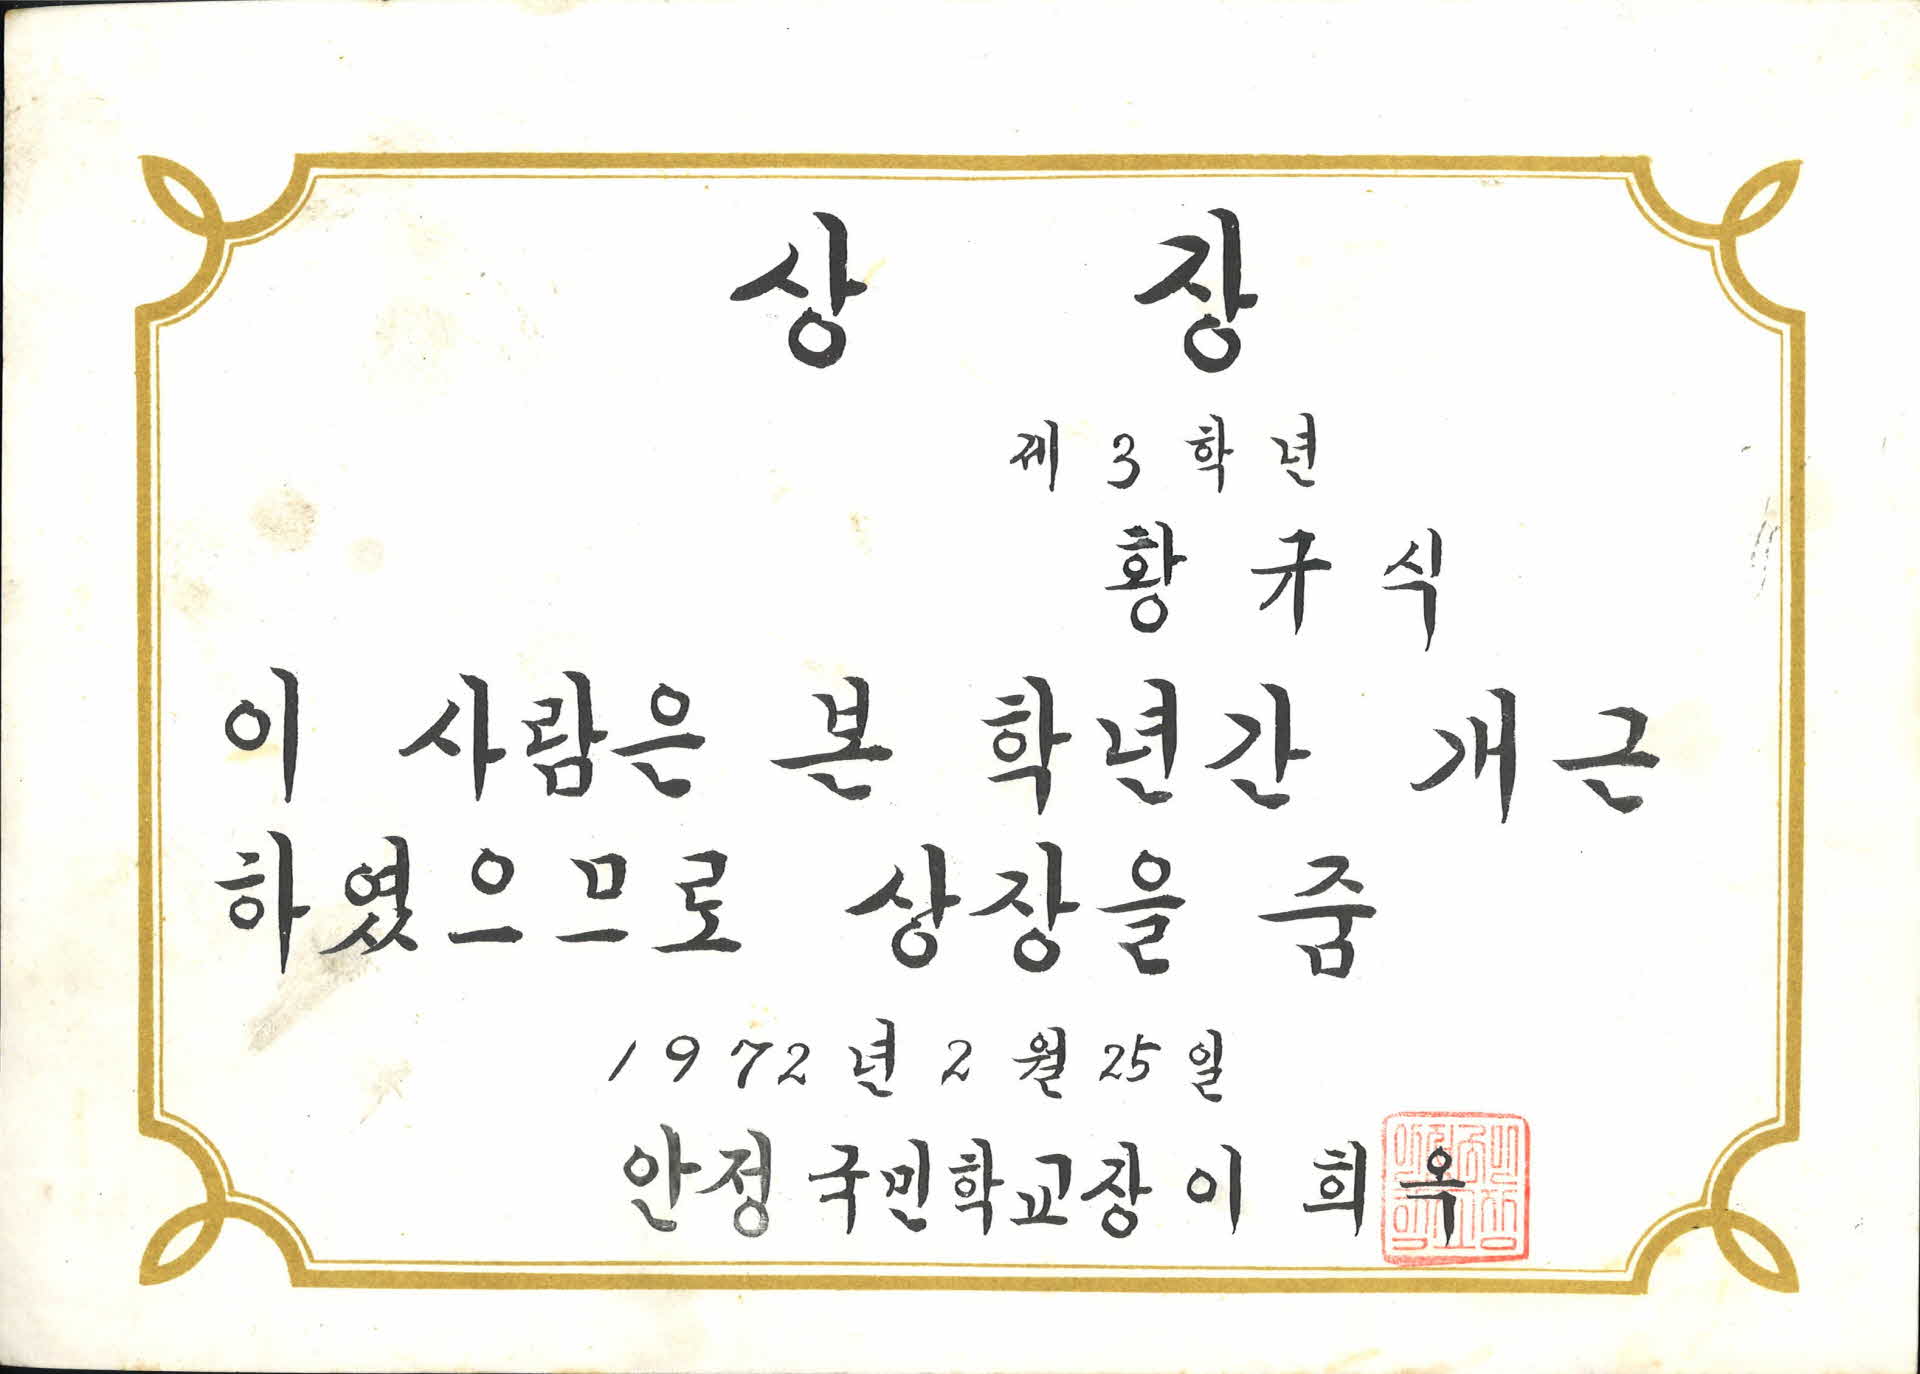 상 장
제 3 학 년
황 규 식
이 사람은 본 학년간 개근
하였으므로 상장을 줌
1972년 2월 25일
안정국민학교장 이 희 옥